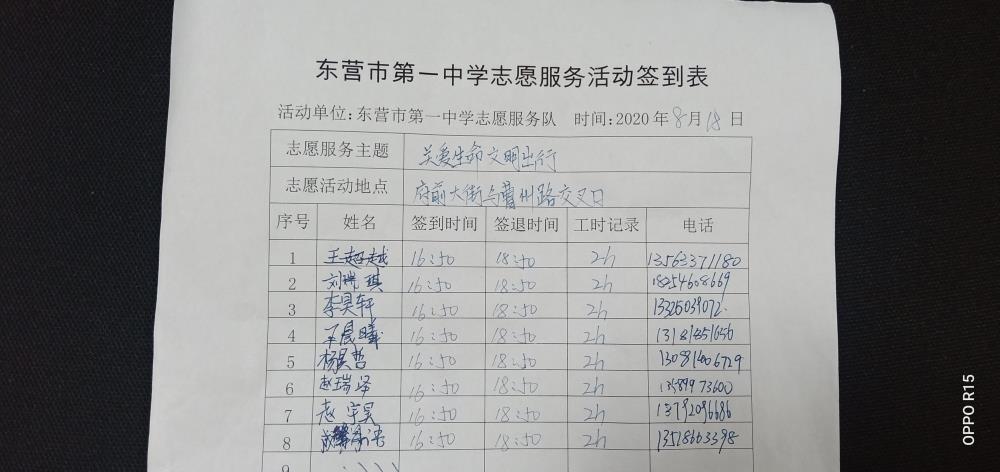 东营市第一中学志愿服务活动签到表
活动单位:东营市第一中学志愿服务队 时间:2020年8月18日
志愿服务主题 关爱生命文明出行
志愿活动地点 府前大街与曹州路交叉口
序号 姓名 签到时间 签退时间 工时记录 电话
1 王超越 16:50 18:50 2h 13563371180
2 刘瑞琪 16:50 18:50 2h 18254608669
3 李昊轩 16:50 18:50 2h 13325039072
4 王晨曦 16:50 18:50 2h
5 杨昊哲 16:50 18:50 2h 13081406729
6 赵瑞泽 16:50 18:50 2h 13589973600
7 赵宇昊 16:50 18:50 2h 13792096686
8 16:50 18:50 2h 13518663398
9
OPPO R15